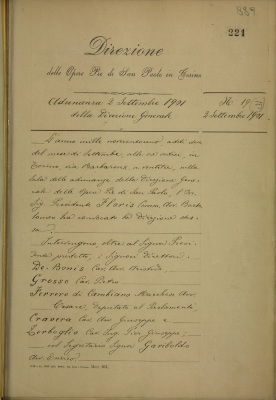 889
221
Direzione
delle Opere Pie di San Paolo in Torino
Adunanza 2 Settembre 1901
della Direzione Generale
N. 19
2 Settembre 1901
L'anno mille novecentouno addì due
del mese di Settembre, alle ore undici, in
Torino, via Barbaroux, nella
Sala delle adunanze della Direzione Gene-
rale delle Opere Pie di San Paolo, l'Ecc.
Sig. Presidente Floris Comm. Avv.
ha convocato la Direzione stes-
sa.
Intervengono oltre al Signor Presi-
dente predetto, i Signori Direttori:
De-Bonis Cav. Avv.
Grosso Cav. Pietro
Ferrero di Cambiano Marchese Avv.
Cesare, deputato al Parlamento
Cravera Cav. Avv. Giuseppe e
Zerboglio Cav. Ing. Giuseppe;
col Segretario Signor Garibaldi
Avv. Enrico